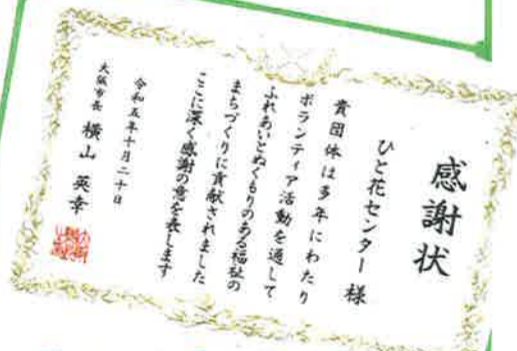 感謝状
ひと花センター 様
貴団体は多年にわたり
ボランティア活動を通して
ふれあいとぬくもりのある福祉の
まちづくりに貢献されました
ここに深く感謝の意を表します
令和五年十月二十日
大阪市長 横山 英幸